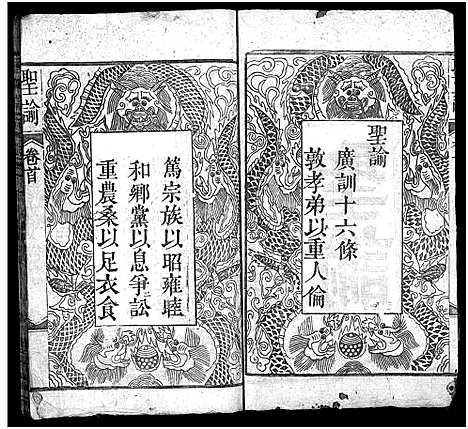 聖諭
廣訓十六條
敦孝弟以重人倫
篤宗族以昭雍睦
和鄉黨以息爭訟
重農桑以足衣食
聖諭
卷首